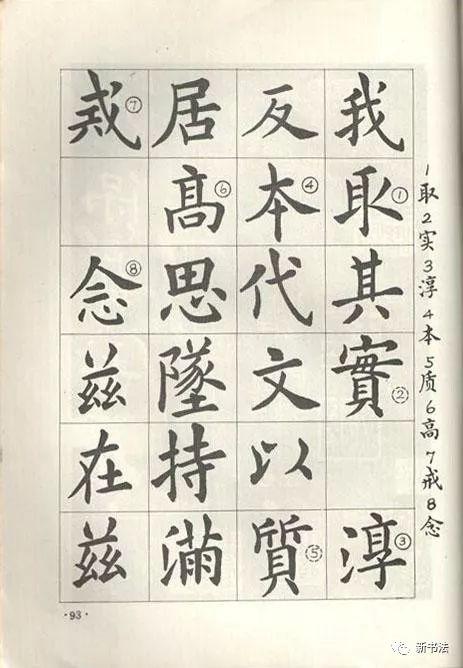 1取2实3淳4本5质6高7戒8念
我取①其實②淳③
反本④代文以質⑤
居高⑥思墜持滿
戒⑦念⑧兹在兹
·93·
新书法